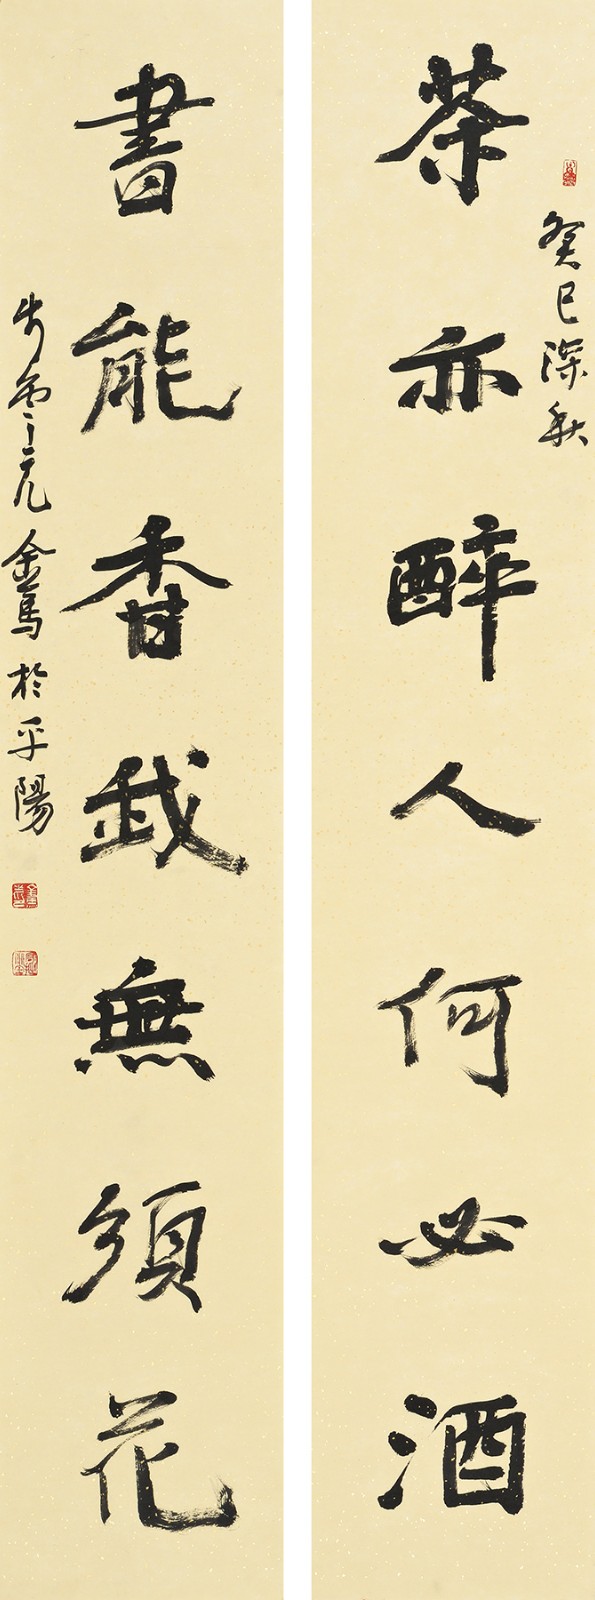 癸巳深秋
茶亦醉人何必酒
書能香我無須花
於平陽